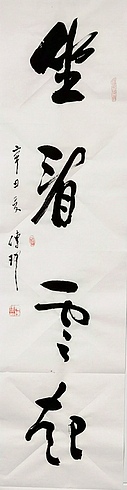 坐看云起
辛丑夏